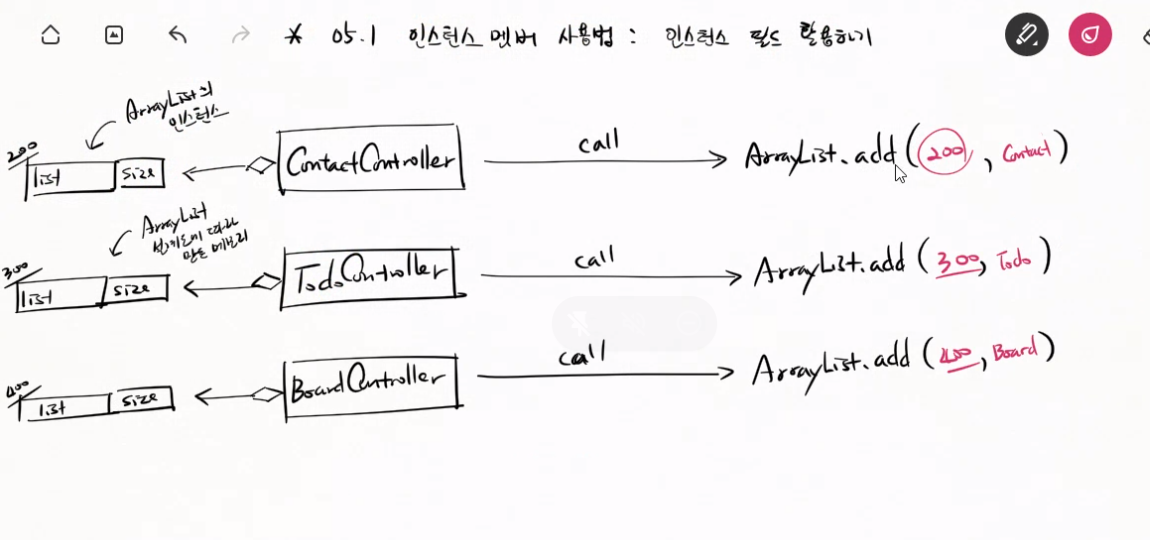 * 05.1 인스턴스 멤버 사용법 : 인스턴스 필드 활용하기
ArrayList의
인스턴스
200
list size
ContactController
call
ArrayList.add(200, Contact)
ArrayList
설계도에 따라
만든 메모리
300
list size
TodoController
call
ArrayList.add(300, Todo)
400
list size
BoardController
call
ArrayList.add(400, Board)